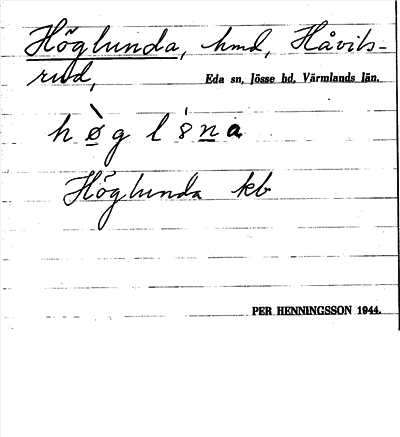 Höglunda, hmd, Håvils-
rud,
Eda sn, Jösse hd, Värmlands län.
Höglunda kb
PER HENNINGSSON 1944.